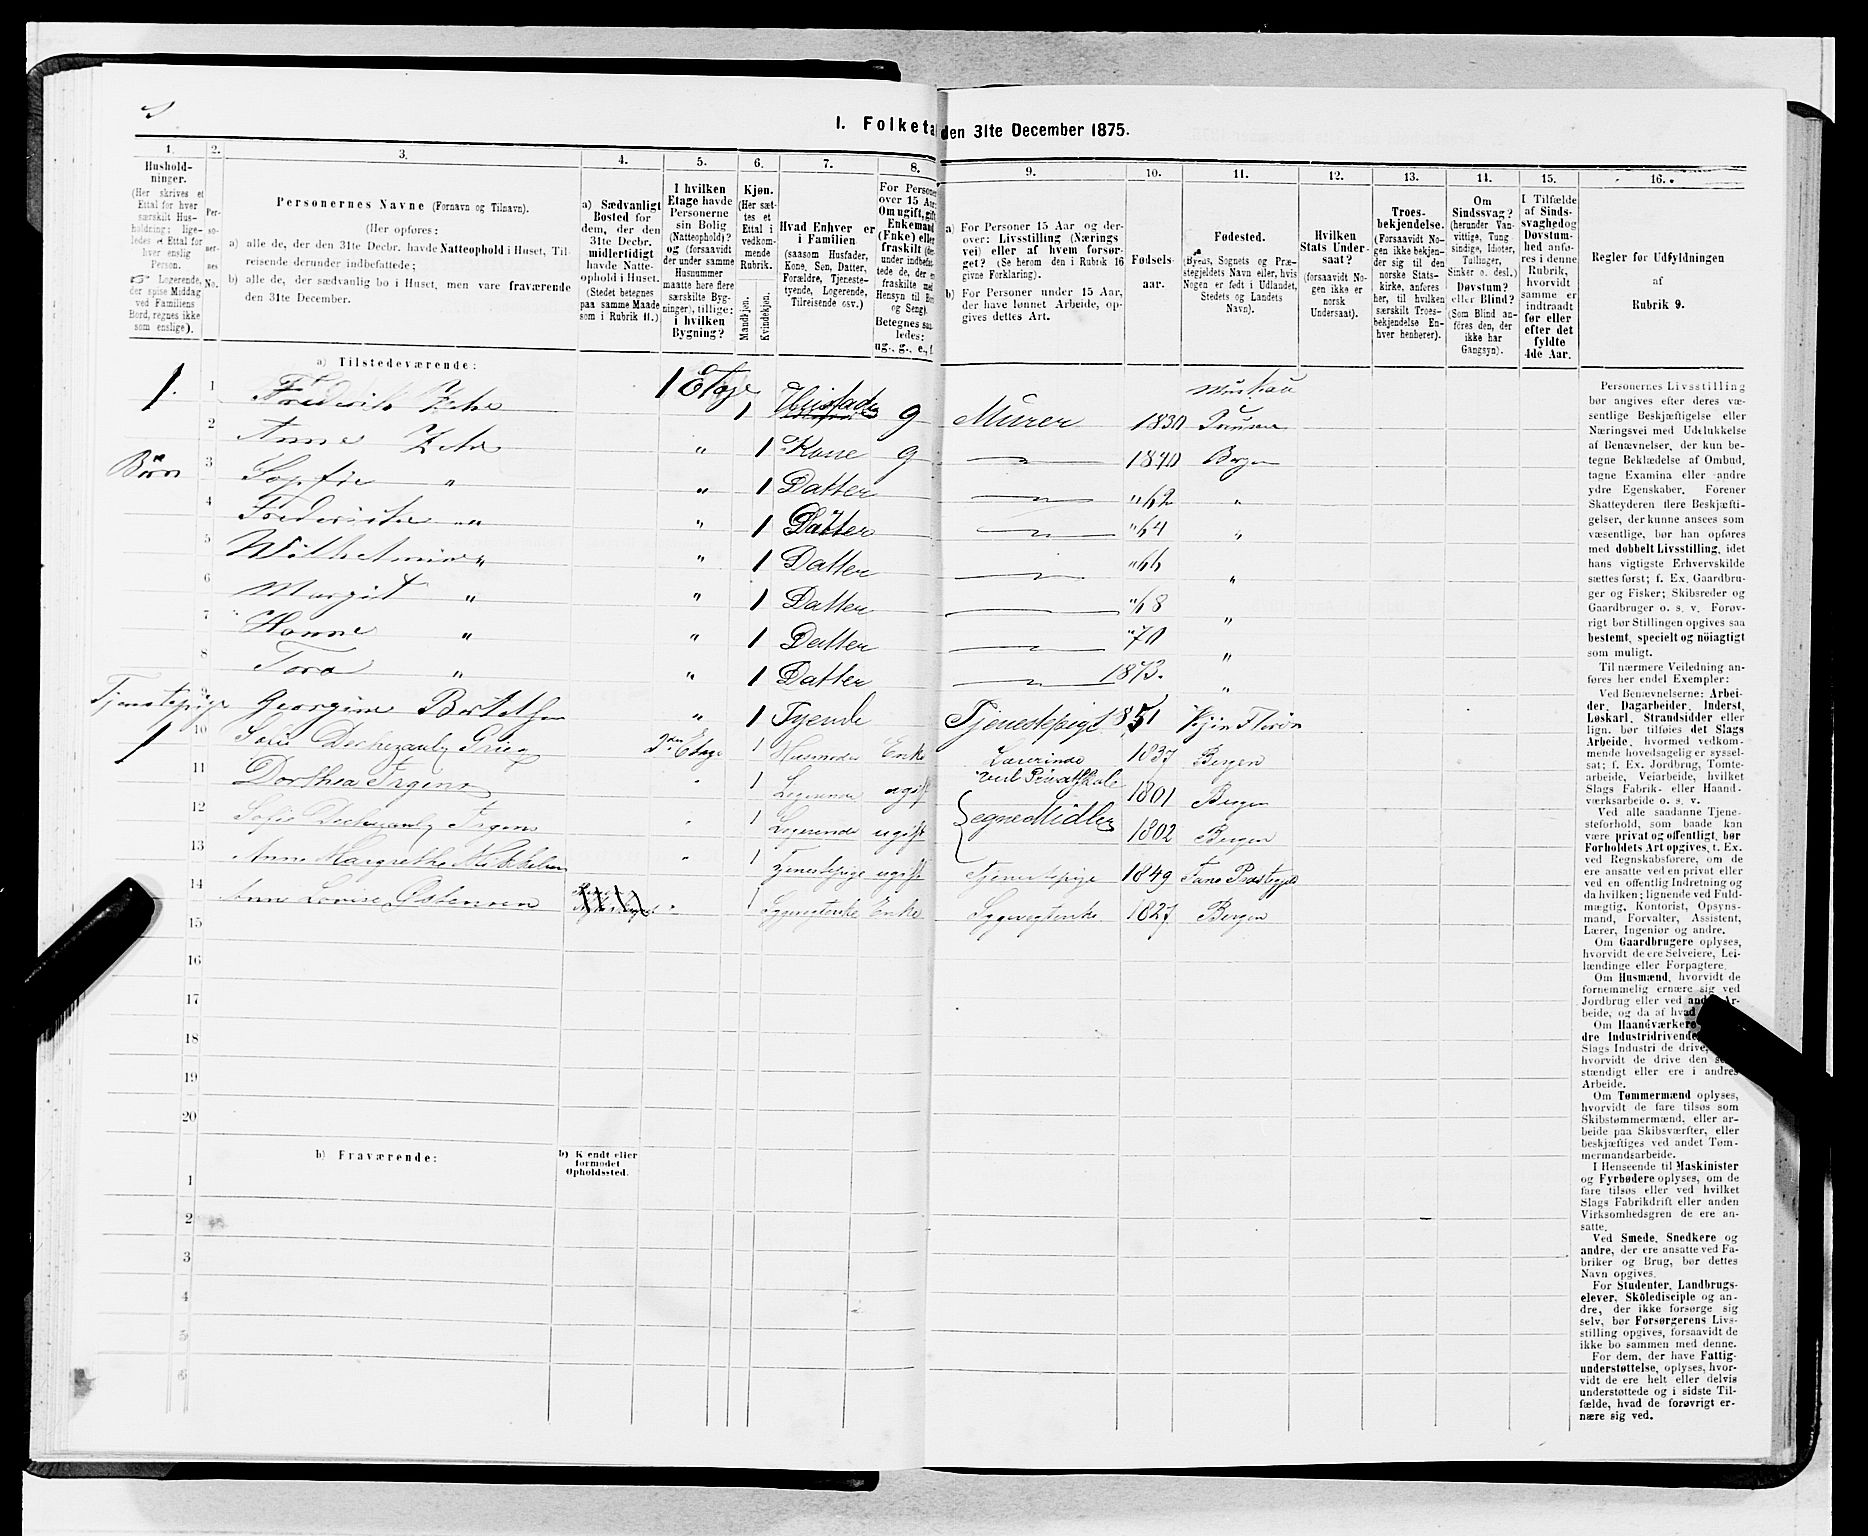 I. Folketæ den 31te December 1875.
1. 2. 3. 4. 5. 6. 7. 8. 9. 10. 11. 12. 13. 14. 15. 16.
Hushold-
ninger.
(Her skrives et
Ettal for hver
særskilt Hus-
holdning; lige-
ledes et Ettal for
hver enslig
Person.
☞ Logerende,
der spise Middag
ved Familiens
Bord, regnes ikke
som enslige).
Per-
so-
ner-
nes
No.
Personernes Navne (Fornavn og Tilnavn).
(Her opføres:
a) alle de, der den 31te Decbr. havde Natteophold i Huset, Til-
reisende derunder indbefattede;
b) alle de, der sædvanlig bo i Huset, men vare fraværende
den 31te December.
a) Sædvanligt
Bosted for
dem, der den
31te Decbr.
midlertidigt
havde Natte-
ophold i Huset.
(Stedet betegnes
paa samme Maade
som i Rubrik II.)
I hvilken
Etage havde
Personerne
sin Bolig
(Natteophold)?
og (forsaavidt
der under samme
Husnummer
maatte høre flere
særskilte Byg-
ninger), tillige:
i hvilken
Bygning?
Kjøn.
(Her sæt-
tes et
Ettal i
vedkom-
mende
Rubrik.
Mandkjøn.
Kvindekjøn.
Hvad Enhver er
i Familien
(saasom Husfader,
Kone, Søn, Datter,
Forældre, Tjeneste-
tyende, Logerende,
Tilreisende osv.)
For Personer
over 15 Aar:
Om ugift, gift
Enkemand
(Enke) eller
fraskilt (der-
under indbefat-
tede de, der er
fraskilte med
Hensyn til Bord
og Seng).
Betegnes saa-
ledes:
ug., g., e., f.
a) For Personer 15 Aar og der-
over: Livsstilling (Nærings
vei) eller af hvem forsør-
get? (Se herom den i Rubrik 16
givne Forklaring).
b) For Personer under 15 Aar,
der have lønnet Arbeide, op-
gives dettes Art.
Fødsels-
aar.
Fødested.
(Byens, Sognets og Præ-
stegjeldets Navn eller, hvis
Nogen er født i Udlandet,
Stedets og Landets
Navn).
Hvilken
Stats Under-
saat?
(forsaavidt No-
gen ikke er
norsk
Undersaat).
Troes-
bekjendelse.
(Forsaavidt No-
gen ikke bekjen-
der sig til den
norske Stats-
kirke, anføres
her, til hvilken
særskilt Troes-
bekjendelse En-
hver henhører).
Om
Sindssvag?
(herunder Van-
vittige, Tung
sindige, Idioter,
Tullinger,
Sinker o. desl.)
Døvstum?
eller Blind?
(Som Blind an-
føres den, der
ikke har
Gangsyn).
I Tilfælde
af Sinds-
svaghed og
Døvstum-
hed anfø-
res i denne
Rubrik,
hvorvidt
samme er
indtraadt
før eller
efter det
fyldte
4de Aar.
Regler før Udfyldningen
af
Rubrik 9.
a) Tilstedeværende:
1. 1 Frederik Zehe 1 Etage 1 Husfader g Murer 1830
2 Anne Zehe " 1 Kone g 1840 Bergen
Børn 3 Sopfie " " 1 Datter " 62 "
4 Frederikke " " 1 Datter " 64 "
5 Wilhelmine " " 1 Datter " 66 "
6 Margit " " 1 Datter " 68 "
7 Hanne " " 1 Datter " 70 "
8 Tora " " 1 Datter 1873. "
Tjenestepige 9 Georgine Bertelsen " 1 Tyende Tjenestepige 1851 Florøn
1 10 Sofie Dechezaulx Grieg 2den Etage 1 Husmoder Enke Lærerinde ved Privatskole 1837 Bergen
11 Dorthea Irgens " 1 Logerende ugift Egne Midler 1801 Bergen
12 Sofie Dechezaulx Irgens " 1 Logerende ugift 1802 Bergen
13 Anne Margrethe Mikkelsen " 1 Tjenestepige ugift Tjenestepige 1849 Fane Præstegjeld
14 Anne Lovise Østensen " 1 Sygevogterske Enke Sygevogterske 1827 Bergen
15
16
17
18
19
20
b) Fraværende:
b) Kjendt eller
formodet
Opholdssted.
1
2
3
4
5
6
Personernes Livsstilling
bør angives efter deres væ-
sentlige Beskjæftigelse eller
Næringsvei med Udelukkelse
af Benævnelser, der kun be-
tegne Beklædelse af Ombud,
tagne Examina eller andre
ydre Egenskaber. Forener
Skatteyderen flere Beskjæfti-
gelser, der kunne ansees som
væsentlige, bør han opføres
med dobbelt Livsstilling, idet
hans vigtigste Erhvervskilde
sættes først; f. Ex. Gaardbru-
ger og Fisker; Skibsreder og
Gaardbruger o. s. v. Forøv-
rigt bør Stillingen opgives saa
bestemt, specielt og nöiagtigt
som muligt.
Til nærmere Veiledning an-
føres her endel Exempler:
Ved Benævnelserne: Arbei-
der, Dagarbeider, Inderst,
Løskarl, Strandsidder eller
lign. bør tilføies det Slags
Arbeide, hvormed vedkom-
mende hovedsagelig er syssel-
sat; f. Ex. Jordbrug, Tomte-
arbeide, Veiarbeide, hvilket
Slags Fabrik- eller Haand-
værksarbeide o. s. v.
Ved alle saadanne Tjene-
steforhold, som baade kan
være privat og offentligt, bør
Forholdets Art opgives, t. Ex.
ved Regnskabsførere, om de
ere ansatte ved en privat eller
ved en offentlig Indretning og
da hvilken; lignende ved Fuld-
mægtig, Kontorist, Opsyns-
mand, Forvalter, Assistent,
Lærer, Ingeniør og andre.
Om Gaardbrugere oplyses,
hvorvidt de ere Selveiere, Lei-
lændinge eller Forpagtere.
Om Husmænd, hvorvidt de
fornemmelig ernære sig ved
Jordbrug eller ved andet Ar-
beide, og da af hvad
Om Haandværkere
dre Industridrivende,
Slags Industri de drive,
hvorvidt de drive den
stændigt eller ere i andres
Arbeide.
Om Tømmermænd oplyses,
hvorvidt de fare tilsøs som
Skibstømmermænd, eller ar-
beide paa Skibsværfter, eller
beskjæftiges ved andet Tøm-
mermandsarbeide.
I Henseende til Maskinister
og Fyrbødere oplyses, om de
fare tilsøs eller ved hvilket
Slags Fabrikdrift eller anden
Virksomhedsgren de ere an-
satte.
Ved Smede, Snedkere og
andre, der ere ansatte ved Fa-
briker og Brug, bør dettes
Navn opgives.
For Studenter, Landbrugs-
elever, Skôledisciple og an-
dre, der ikke forsørge sig
selv, bør Forsørgerens Livs-
stilling opgives, forsaavidt de
ikke bo sammen med denne.
For dem, der have Fattig-
understøttelse, oplyses, hvor-
vidt de ere helt eller delvis
understøttede og i sidste Til-
fælde, hvad de forøvrigt er-
nære sig ved.